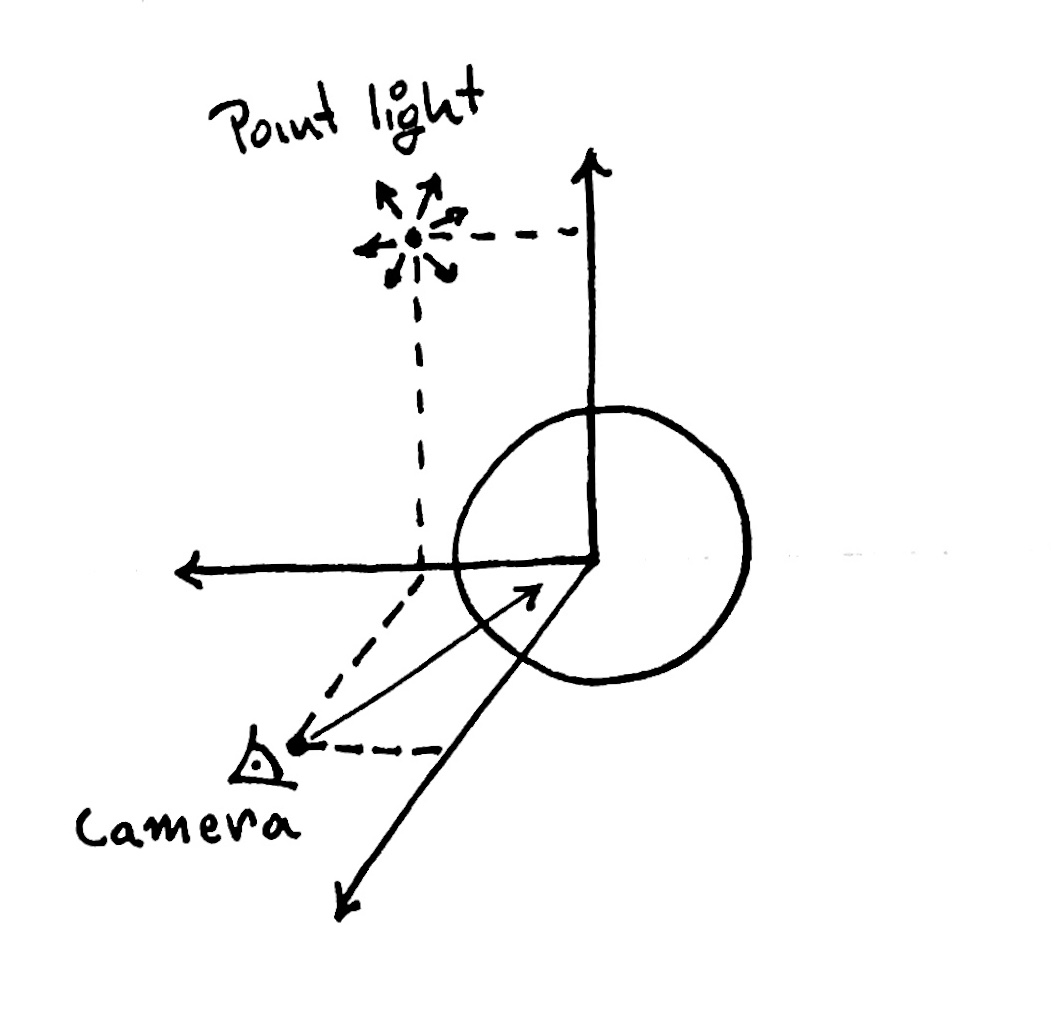 Point light
Camera